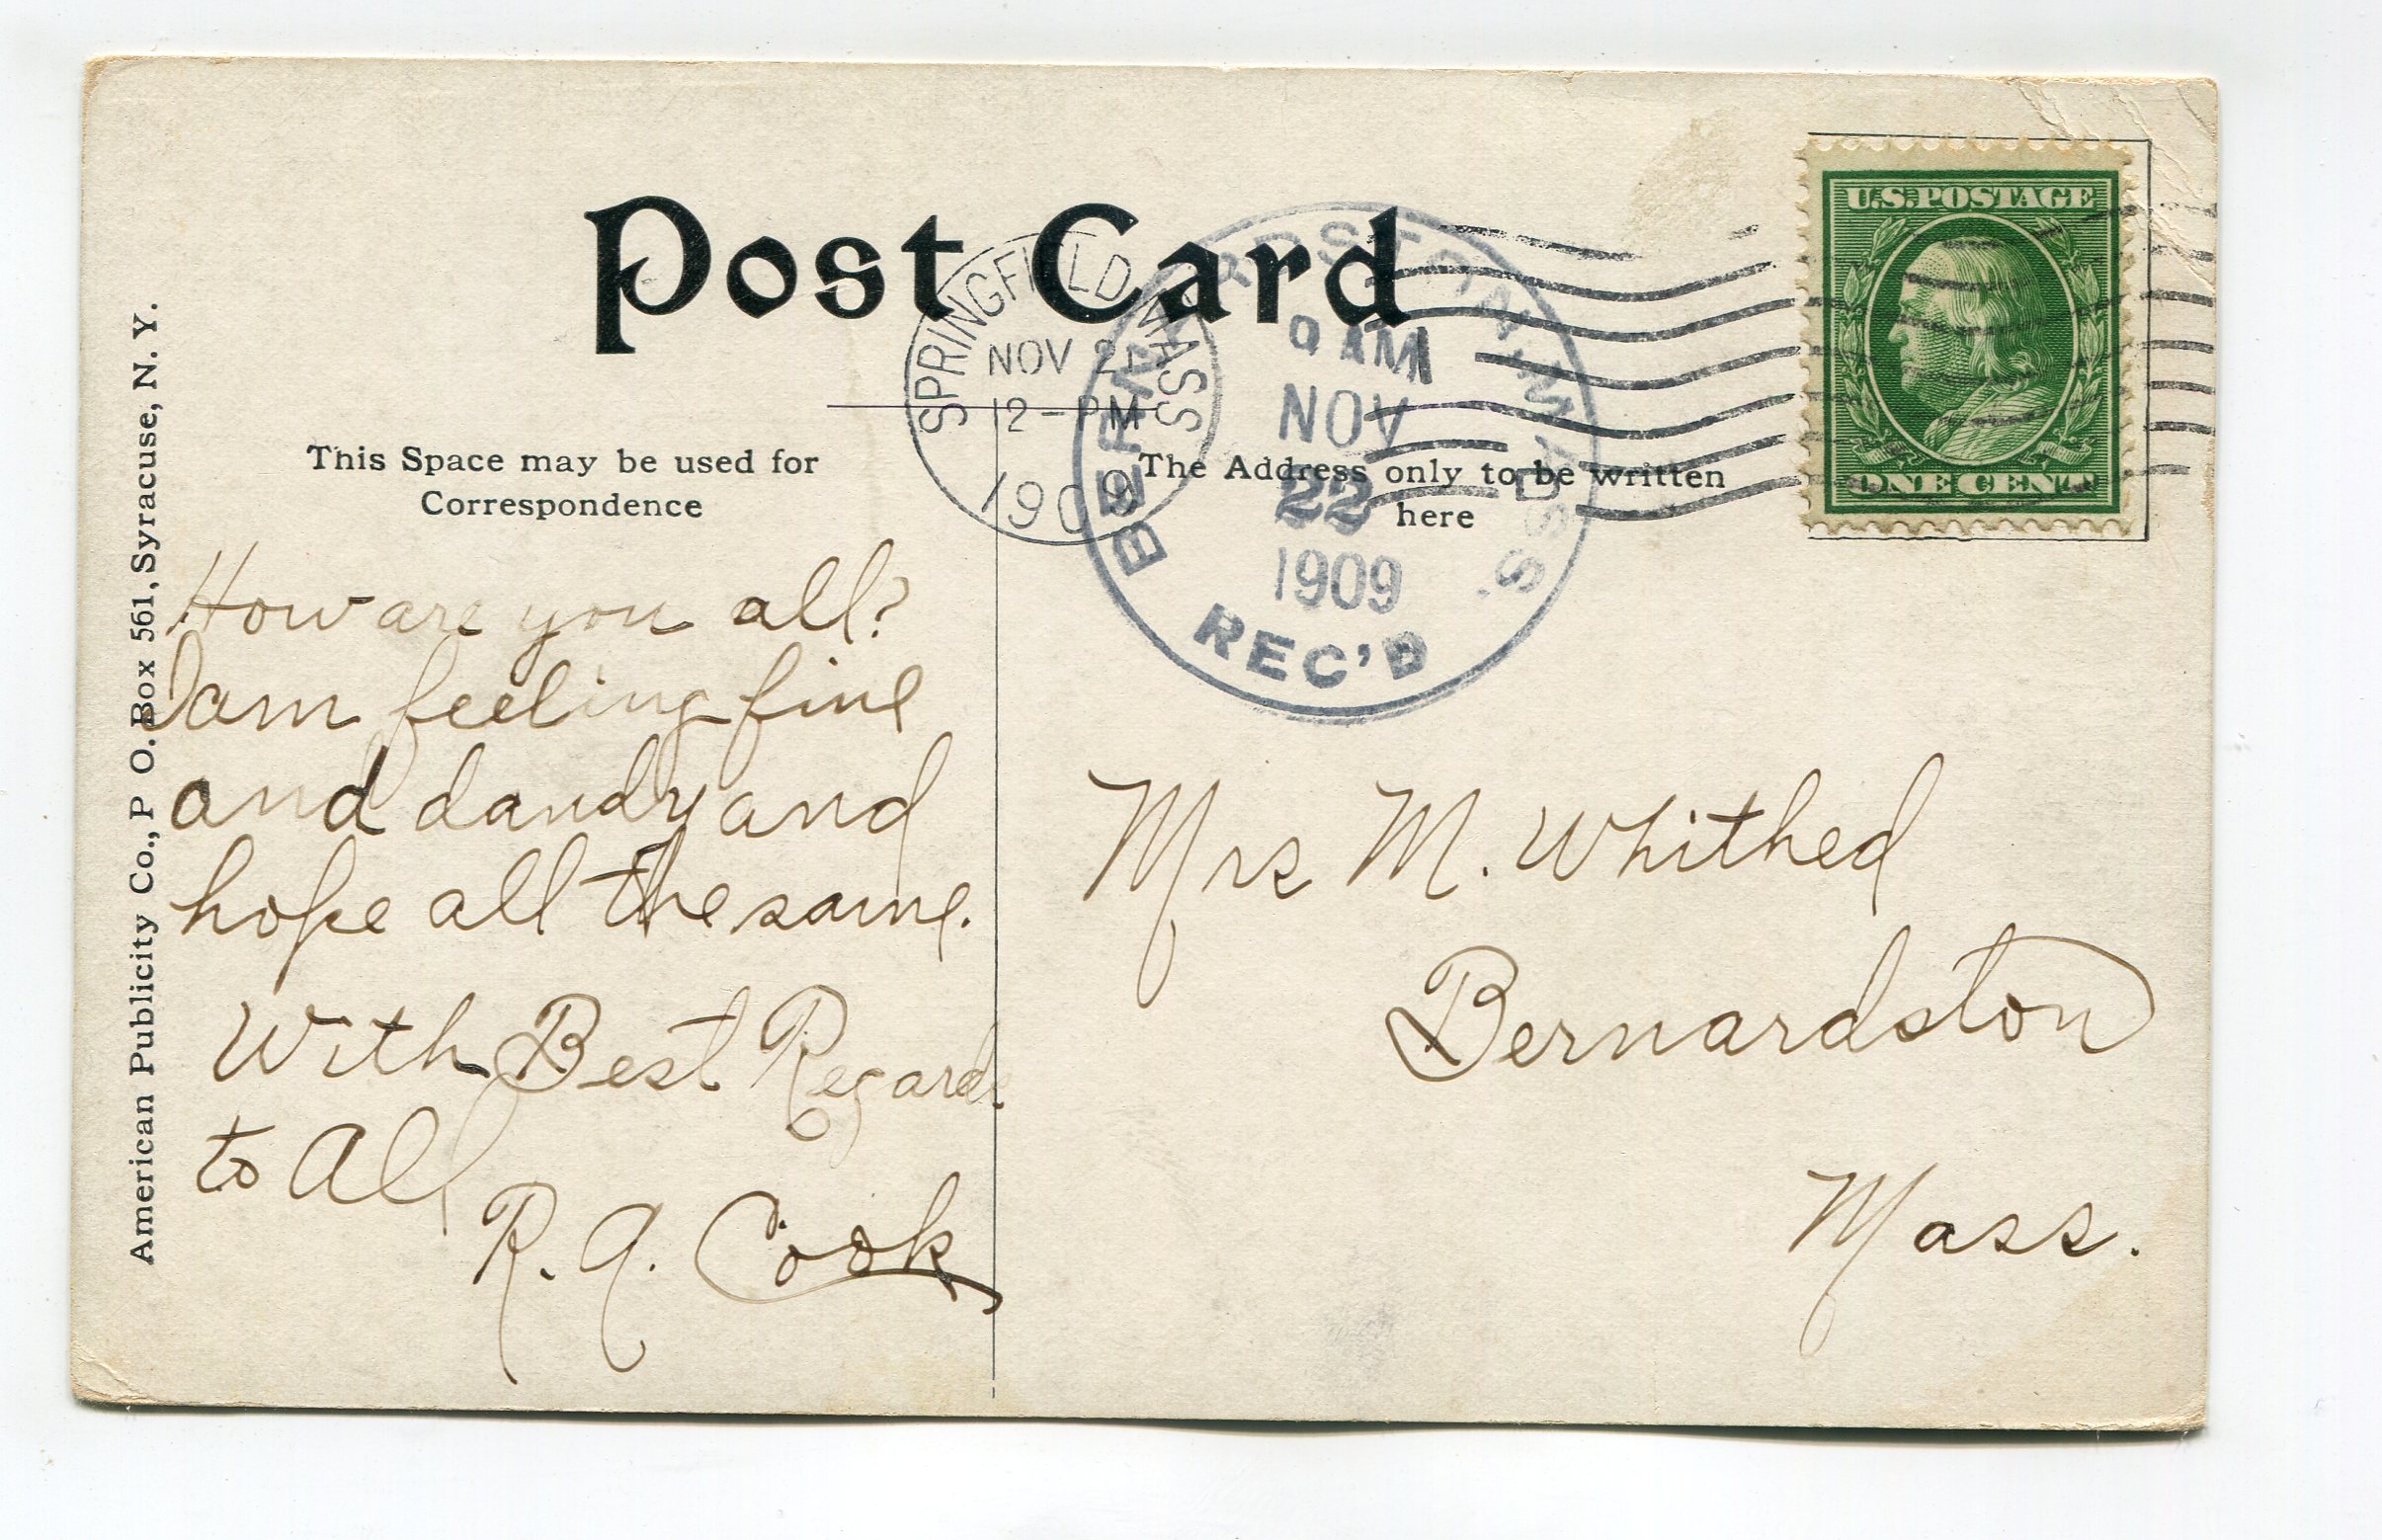 Post Card
SPRINGFIELD MASS
NOV 21
12-PM
1909
BERNARDSTON, MASS.
9 AM
NOV
22
1909
REC'D
U.S. POSTAGE
ONE CENT
This Space may be used for
Correspondence
The Address only to be written
here
American Publicity Co., P O. Box 561, Syracuse, N. Y.
How are you all?
I am feeling fine
and dandy and
hope all the same.
With Best Regards
to All
R. A. Cook
Mrs M. Whithed
Bernardston
Mass.